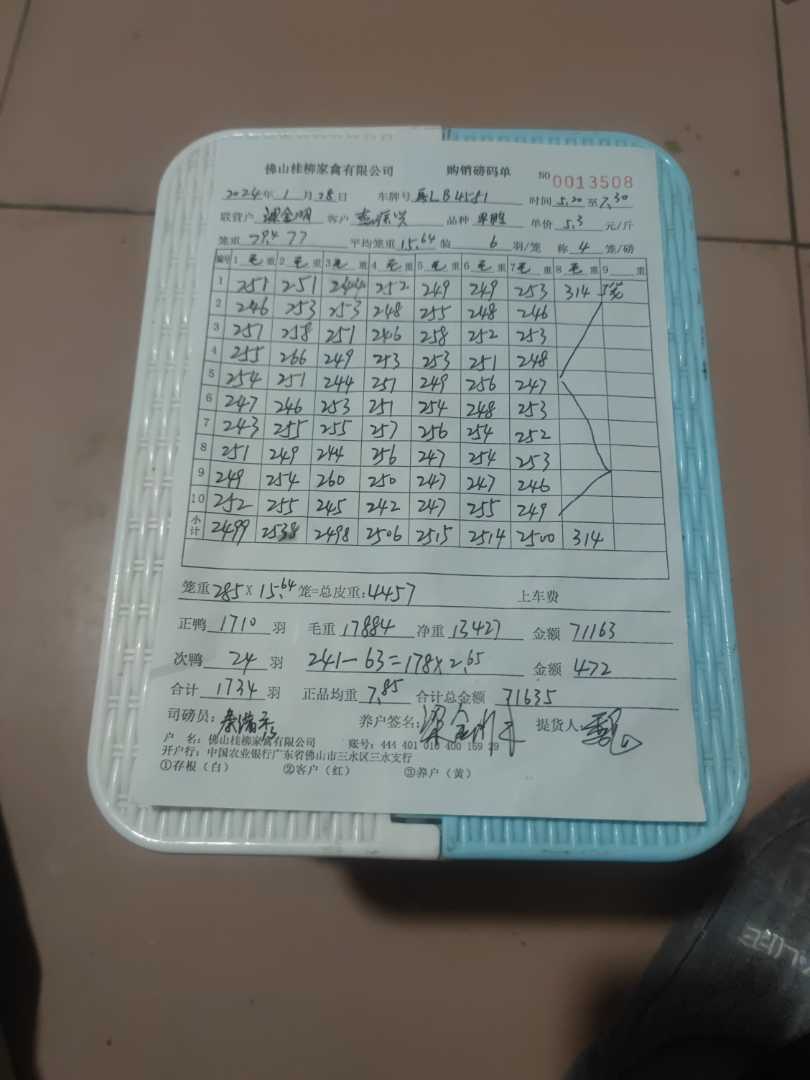 佛山桂柳家禽有限公司 购销磅码单 NO 0013508
2024年 1 月 28 日 车牌号 LB4581 时间 5.20 至 7.30
联营户 梁金明 客户 品种 单价 5.3 元/斤
笼重 平均笼重 15.64 6 羽/笼 称 4 笼/磅
编号 1 毛 重 2 毛 重 3 毛 重 4 毛 重 5 毛 重 6 毛 重 7 毛 重 8 毛 重 9 重
1 251 251 244 252 249 249 253 314
2 246 253 253 248 255 248 246
3 251 258 251 246 258 252 253
4 255 266 249 253 253 251 248
5 254 251 244 251 249 256 247
6 247 246 253 251 254 248 253
7 243 255 255 257 256 254 252
8 251 249 244 256 247 254 253
9 249 254 260 250 247 247 246
10 252 255 245 242 247 255 249
小计 2499 2538 2498 2506 2515 2514 2500 314
笼重 285 × 15.64 笼=总皮重: 4457 上车费
正鸭 1710 羽 毛重 17884 净重 13427 金额 71163
次鸭 24 羽 241-63=178×2.65 金额 472
合计 1734 羽 正品均重 7.85 合计总金额 71635
司磅员: 养户签名: 梁金明 提货人:
户 名: 佛山桂柳家禽有限公司 账号: 444 401 010 400 169 29
开户行: 中国农业银行广东省佛山市三水区三水支行
①存根（白） ②客户（红） ③养户（黄）